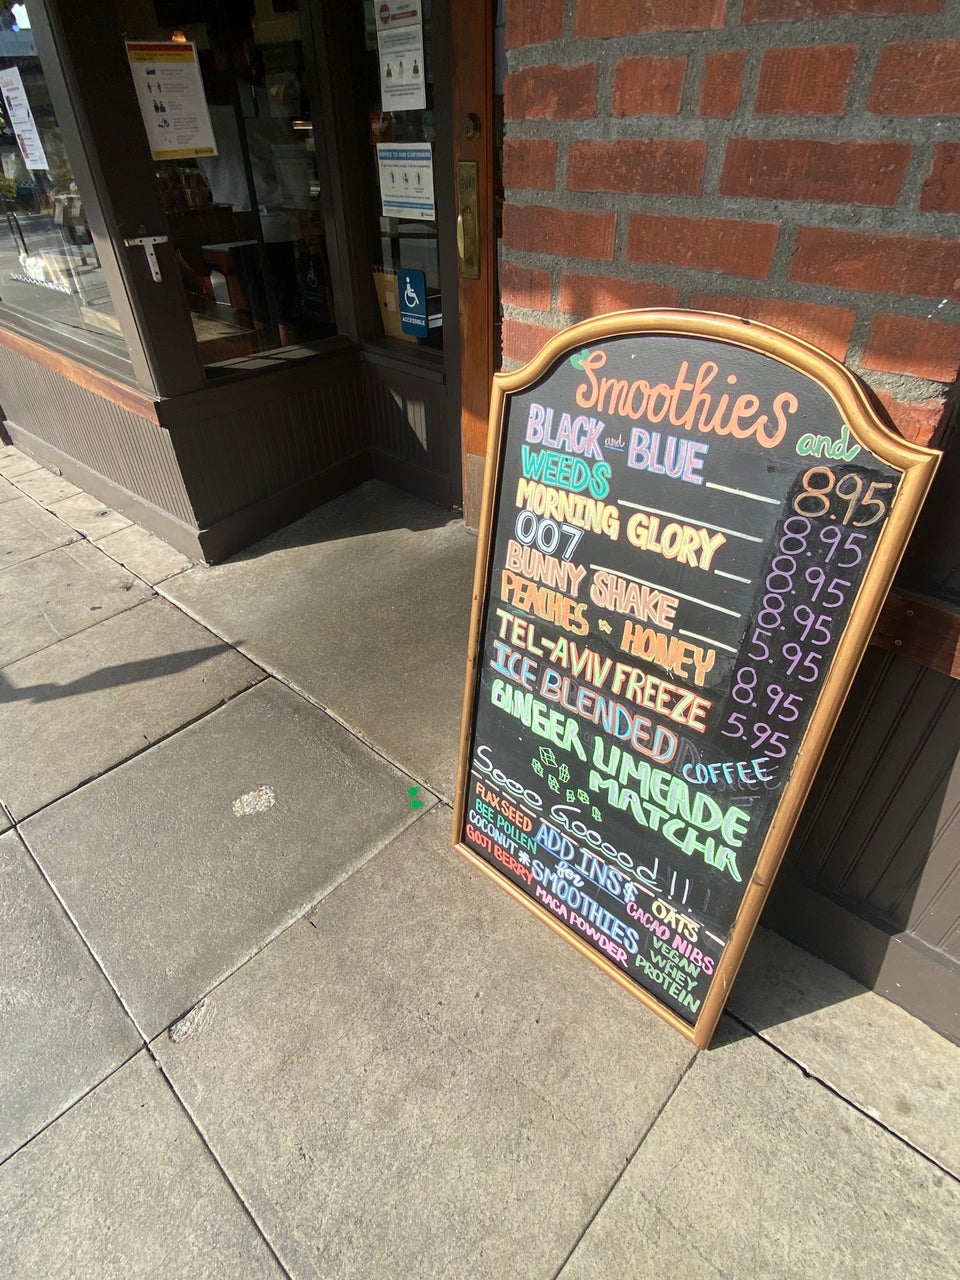 NOTICE TO OUR CUSTOMERS
ACCESSIBLE
Smoothies and
BLACK and BLUE 8.95
WEEDS 8.95
MORNING GLORY 8.95
007 8.95
BUNNY SHAKE 5.95
PEACHES & HONEY 8.95
TEL-AVIV FREEZE 5.95
ICE BLENDED COFFEE
GINGER LIMEADE
MATCHA
Sooo Gooood!!
ADD INS $
for
* SMOOTHIES
FLAXSEED
BEE POLLEN
COCONUT
GOJI BERRY
MACA POWDER
OATS
CACAO NIBS
VEGAN
WHEY
PROTEIN